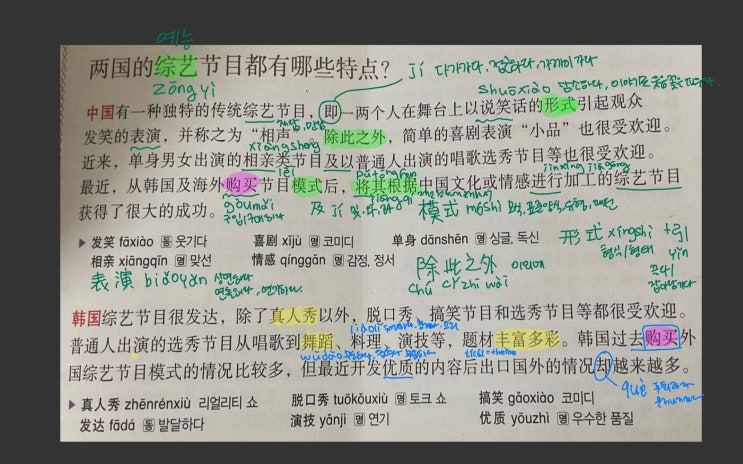 예능
两国的综艺节目都有哪些特点?
zōngyì
jí 다가가다, 접하다, 가까이가다
shuōxiào
中国有一种独特的传统综艺节目，即一两个人在舞台上以说笑话的形式引起观众
发笑的表演，并称之为“相声”。除此之外，简单的喜剧表演“小品”也很受欢迎。
xiàngsheng
近来，单身男女出演的相亲类节目及以普通人出演的唱歌选秀节目等也很受欢迎。
lèi
pǔtōngrén
jìnxíng jiāgōng
最近，从韩国及海外购买节目模式后，将其根据中国文化或情感进行加工的综艺节目
gòumǎi
获得了很大的成功。
及 jí 및, 와, 과
模式 móshì
▶ 发笑 fāxiào 동 웃기다
喜剧 xǐjù 명 코미디
单身 dānshēn 명 싱글, 독신
相亲 xiāngqīn 명 맞선
情感 qínggǎn 명 감정, 정서
形式 xíngshì
형식/형태
引 yǐn
表演 biǎoyǎn
除此之外 이외에
chú cǐ zhī wài
韩国综艺节目很发达，除了真人秀以外，脱口秀、搞笑节目和选秀节目等都很受欢迎。
普通人出演的选秀节目从唱歌到舞蹈、料理、演技等，题材丰富多彩。韩国过去购买外
wǔdǎo
tícái=theme
国综艺节目模式的情况比较多，但最近开发优质的内容后出口国外的情况却越来越多。
què
▶ 真人秀 zhēnrénxiù 리얼리티 쇼
脱口秀 tuōkǒuxiù 명 토크 쇼
搞笑 gǎoxiào 코미디
发达 fādá 동 발달하다
演技 yǎnjì 명 연기
优质 yōuzhì 명 우수한 품질